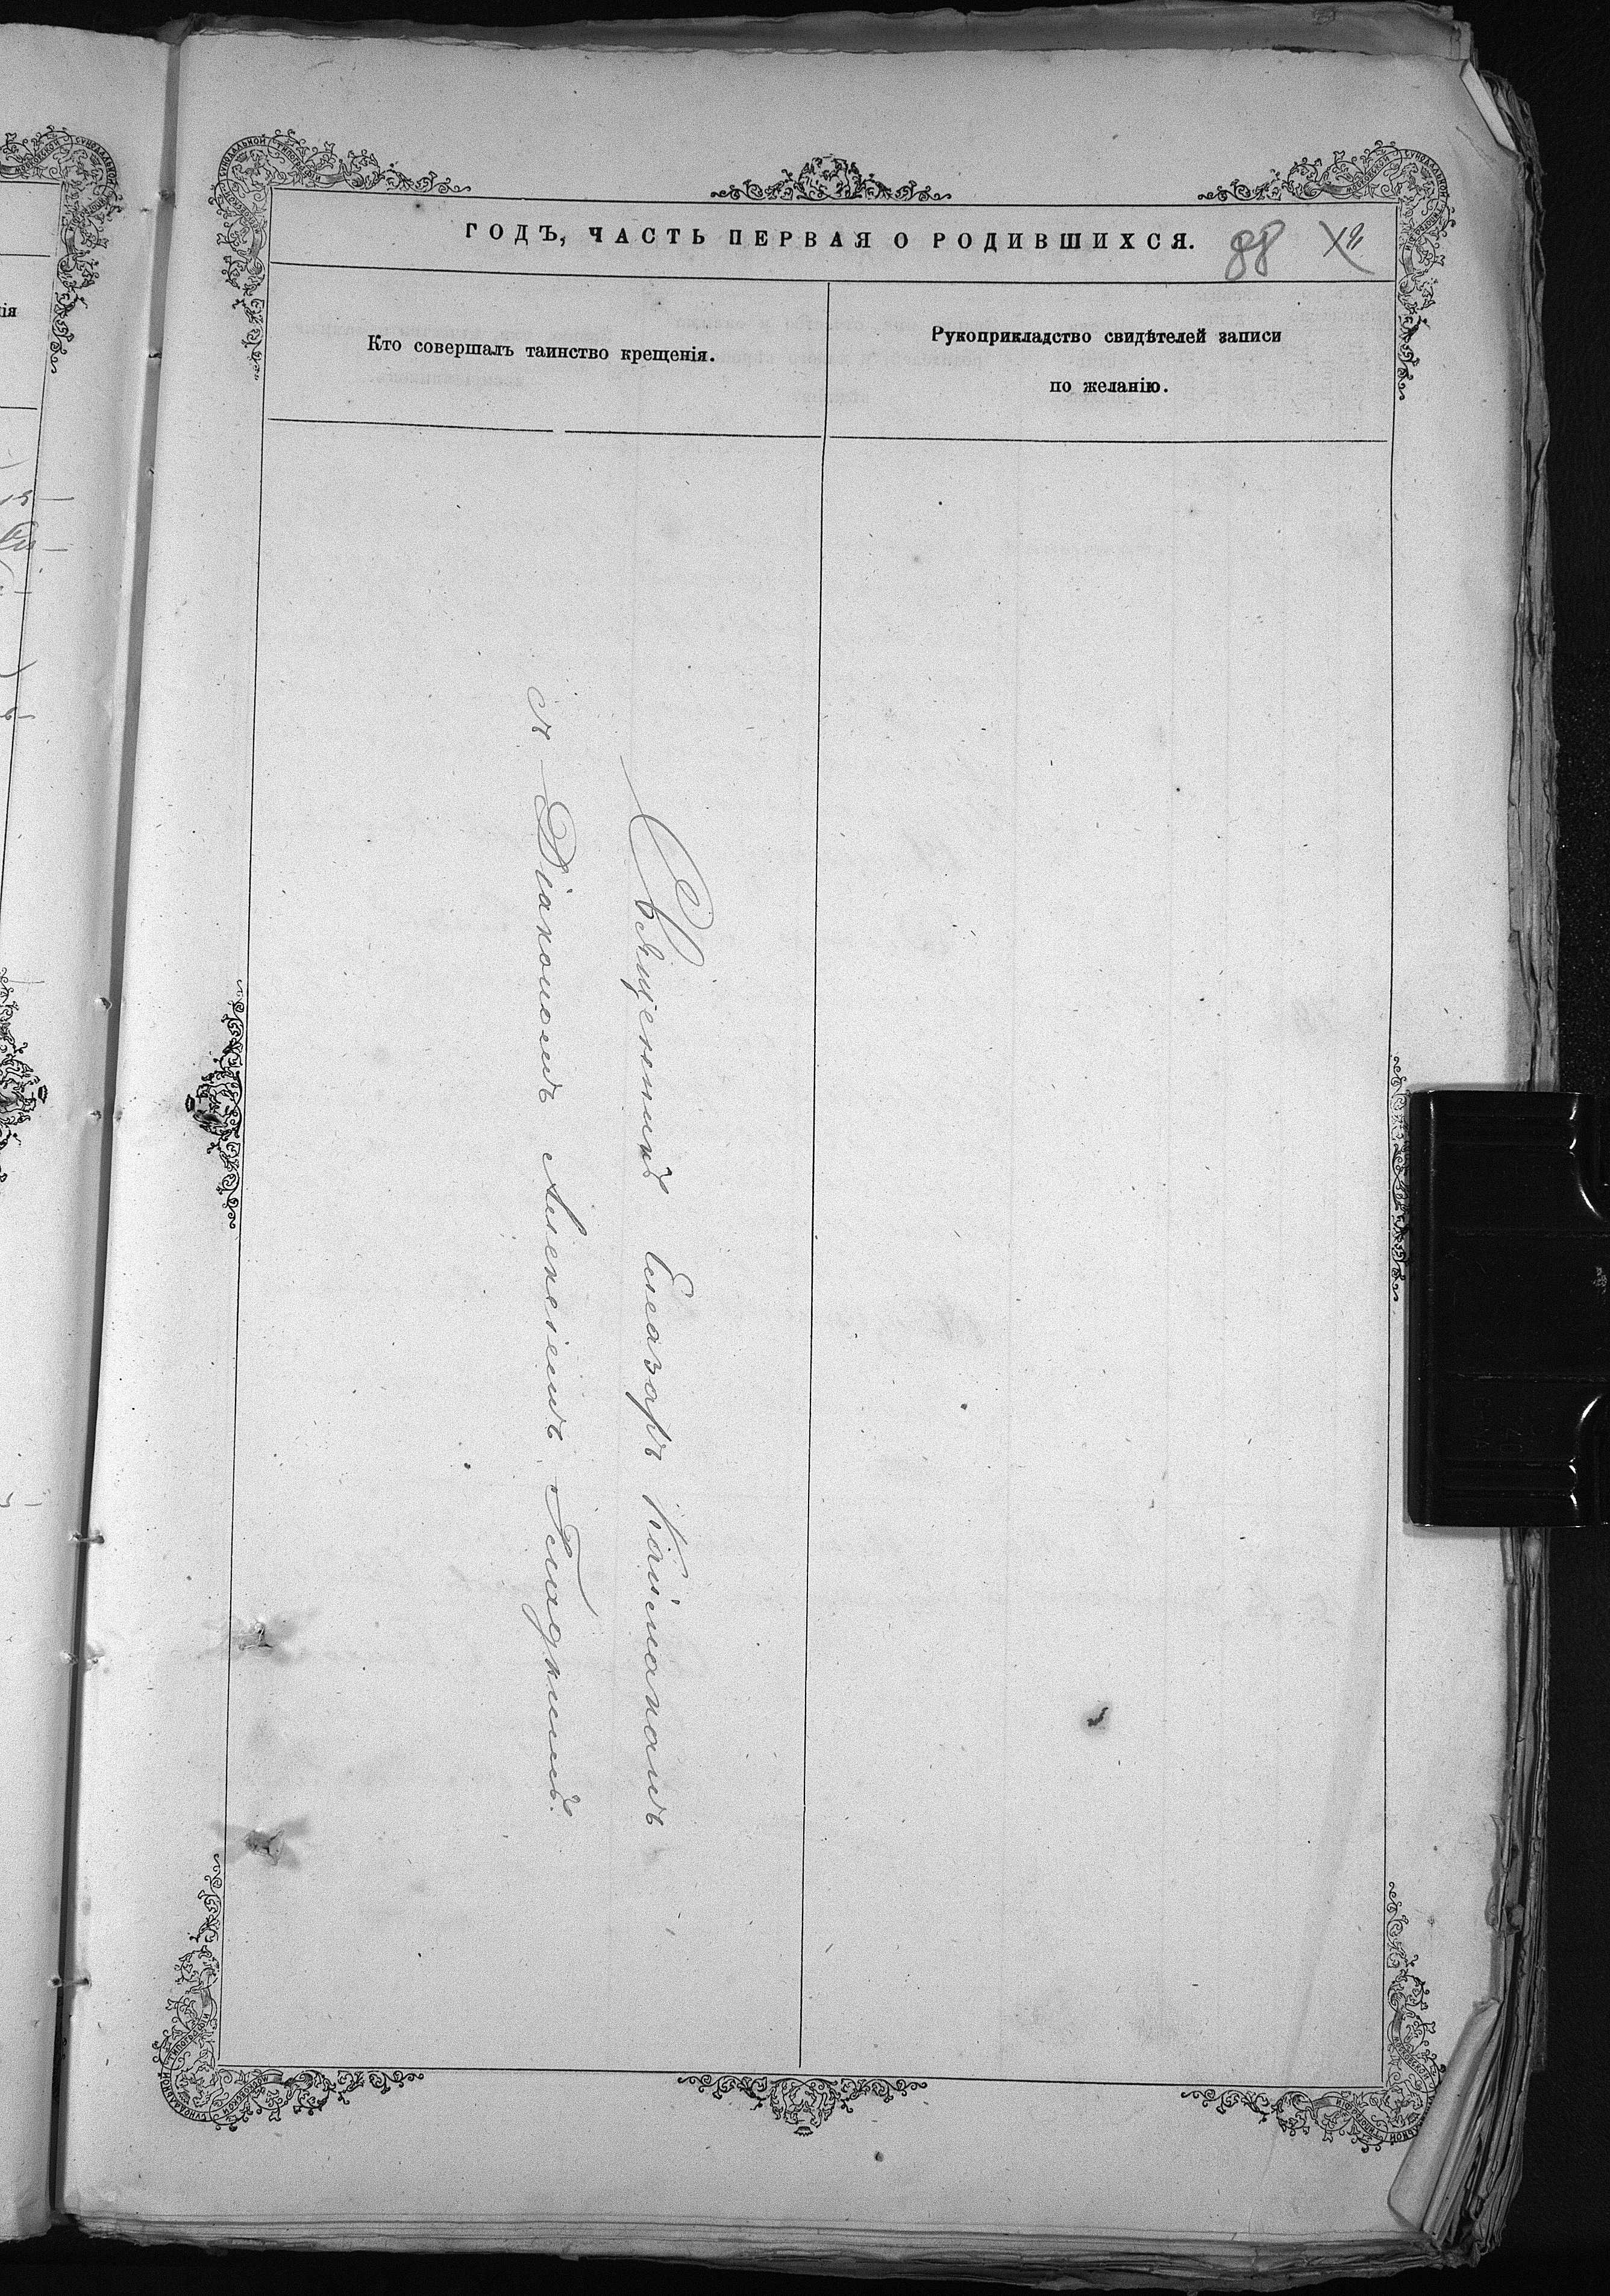 ГОДЪ, ЧАСТЬ ПЕРВАЯ О РОДИВШИХСЯ.
88
Кто совершалъ таинство крещенія.
Рукоприкладство свидѣтелей записи
по желанію.
Священникъ Елеазаръ
съ Діакономъ Алексіемъ Гладкимъ.